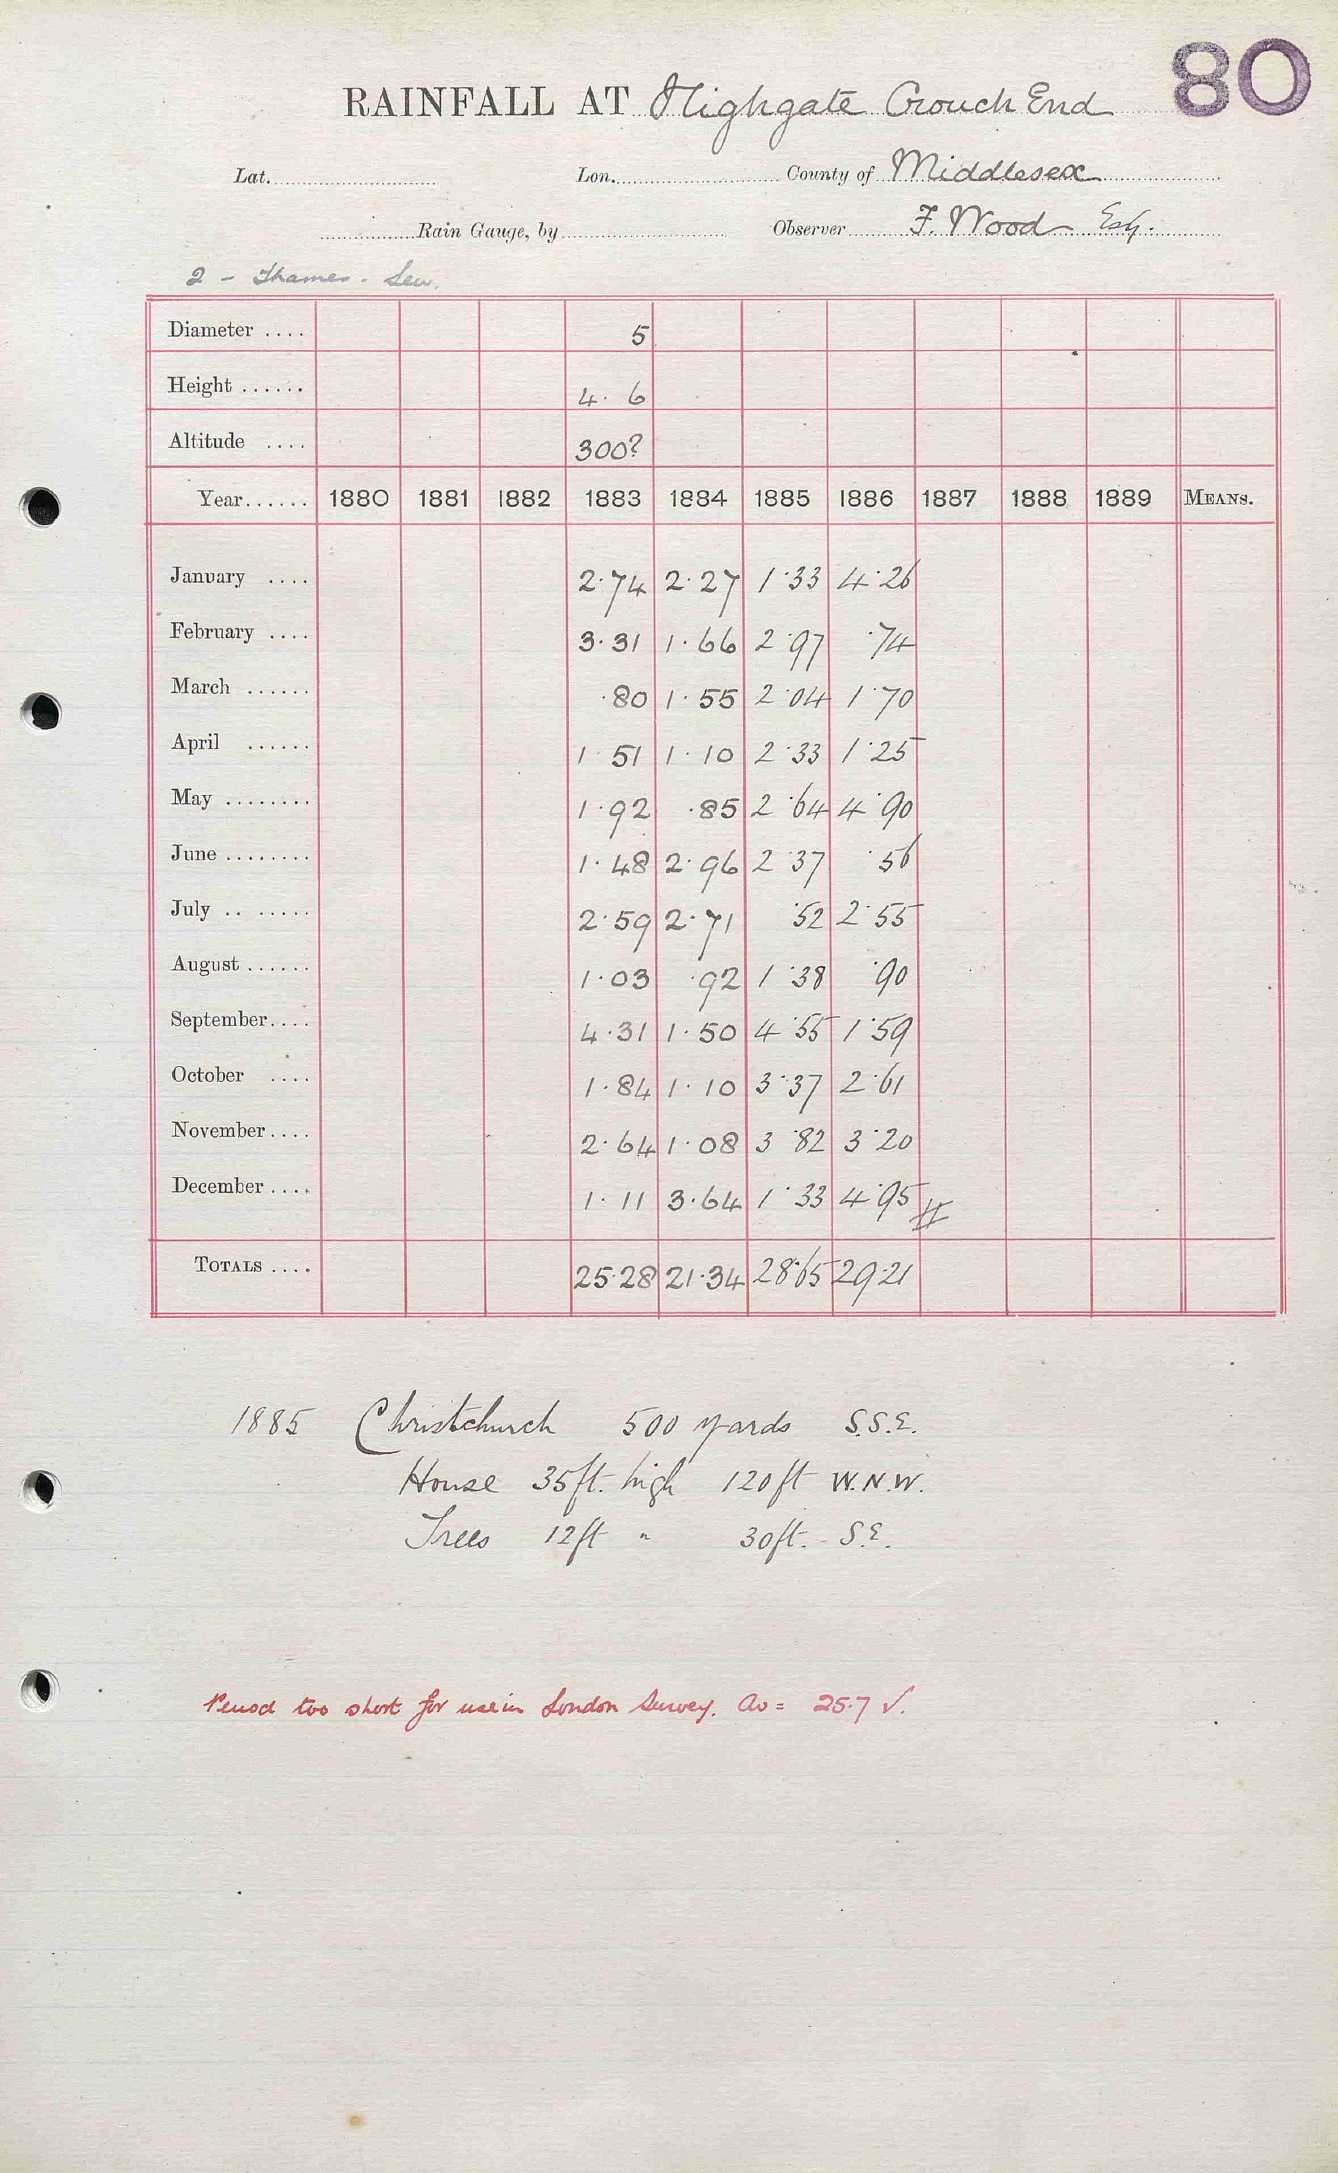 80
RAINFALL AT Highgate Crouch End
Lat. Lon. County of Middlesex
Rain Gauge, by Observer F. Wood Esq.
2 - Thames. Sew.
Diameter .... 5
Height ...... 4. 6
Altitude .... 300?
Year...... 1880 1881 1882 1883 1884 1885 1886 1887 1888 1889 MEANS.
January .... 2.74 2.27 1.33 4.26
February .... 3.31 1.66 2.97 .74
March ...... .80 1.55 2.04 1.70
April ...... 1 51 1.10 2.33 1.25
May ........ 1.92 .85 2.64 4.90
June ........ 1.48 2.96 2.37 .56
July .. ..... 2.59 2.71 .52 2.55
August ...... 1.03 .92 1.38 .90
September.... 4.31 1.50 4.55 1.59
October .... 1.84 1.10 3.37 2.61
November.... 2.64 1.08 3.82 3.20
December .... 1.11 3.64 1.33 4.95
TOTALS .... 25.28 21.34 28.65 29.21
1885 Christchurch 500 yards S.S.E.
House 35ft. high 120ft W.N.W.
Trees 12ft " 30ft. - S.E.
Period too short for use in London Survey. Av = 25.7 √.